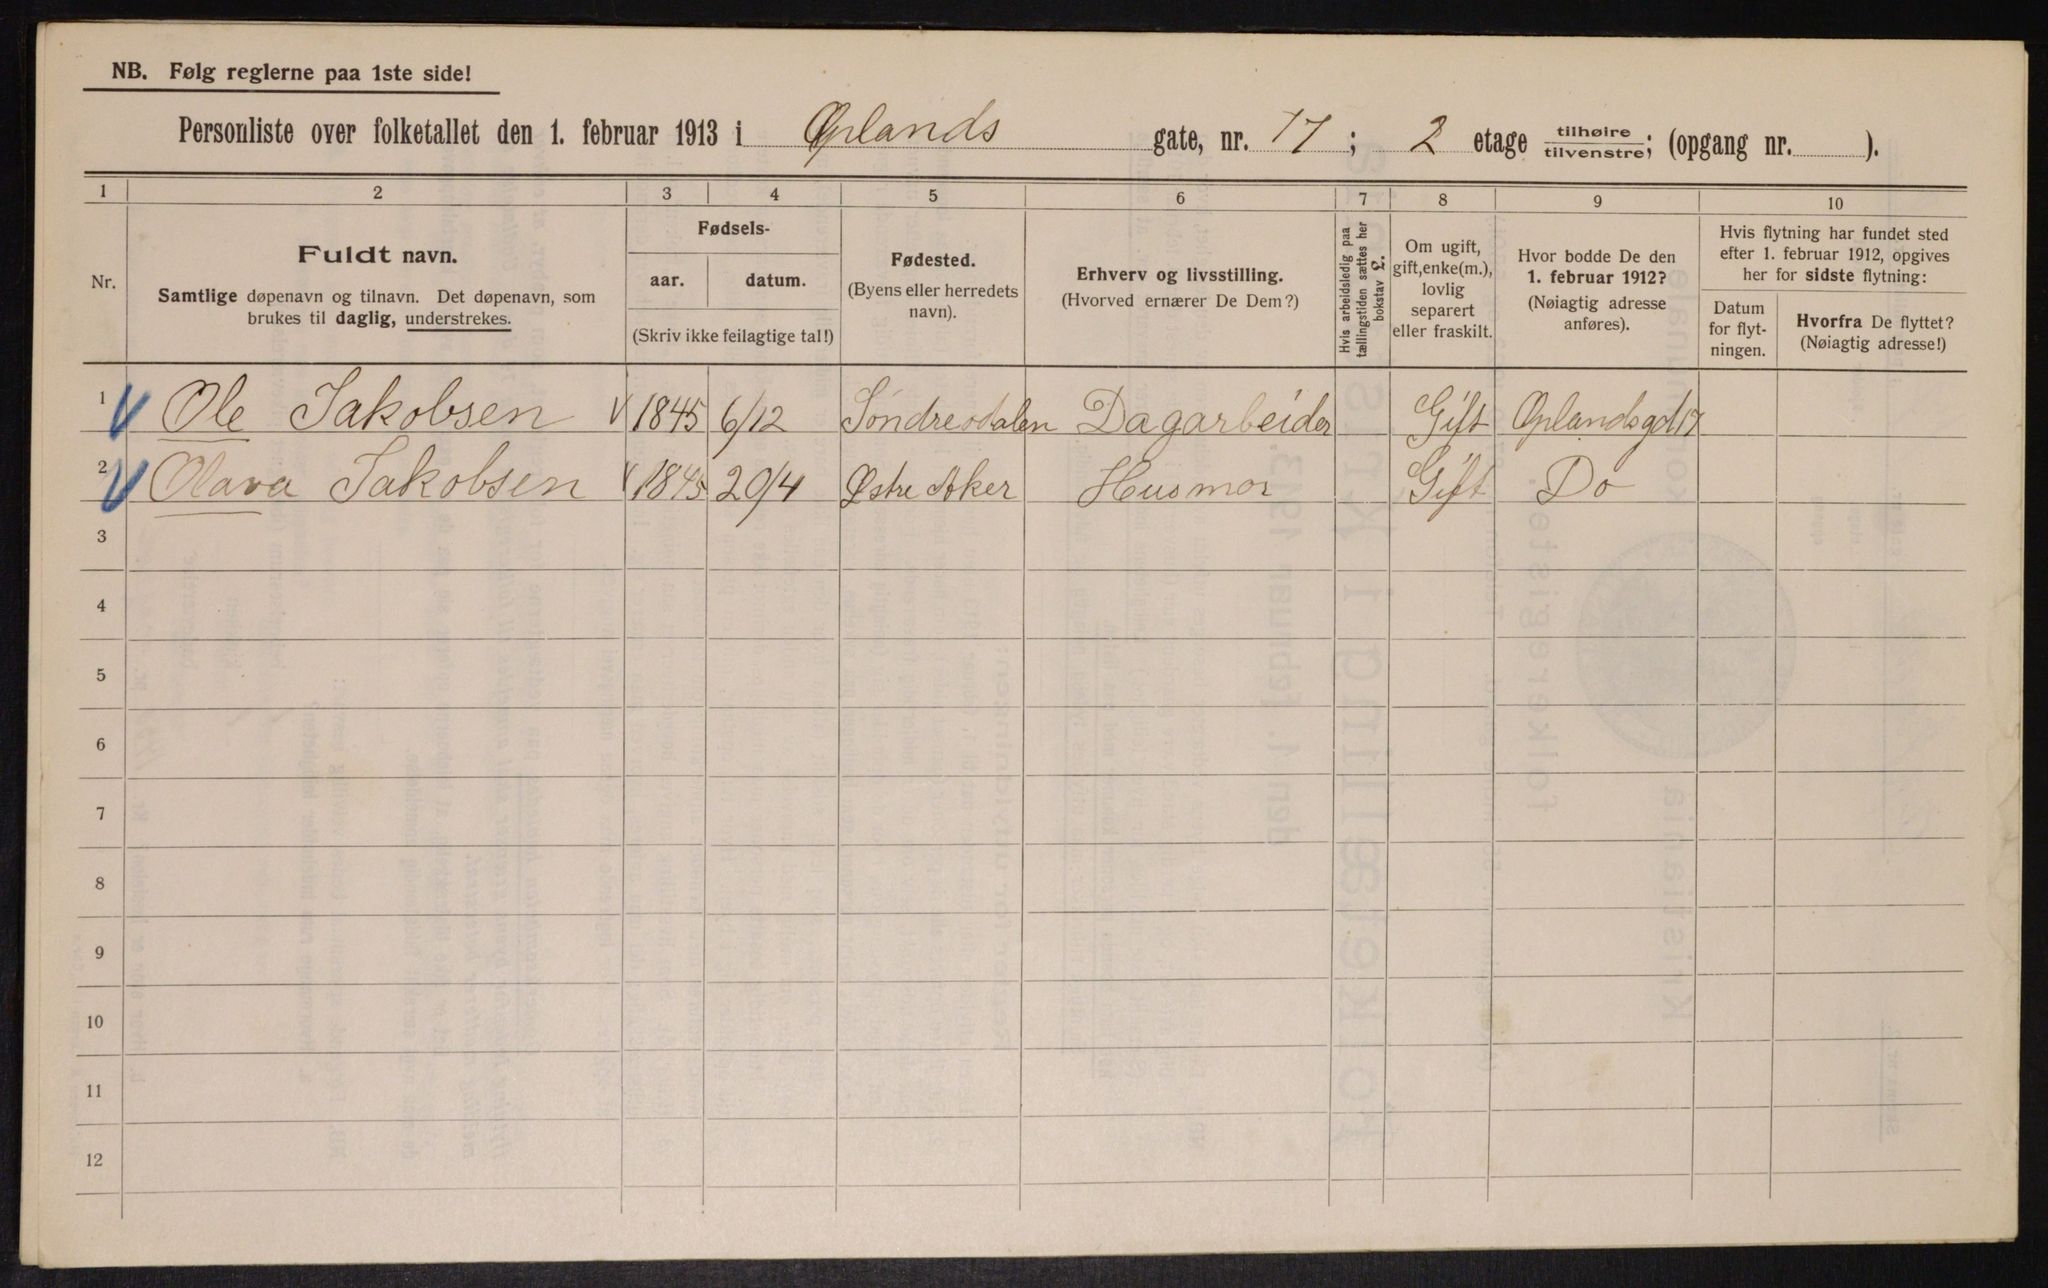 NB. Følg reglerne paa 1ste side!
Personliste over folketallet den 1. februar 1913 i Oplands gate, nr. 17 ; 2 etage tilhøire tilvenstre; (opgang nr. ).
1 2 3 4 5 6 7 8 9 10
Nr.
Fuldt navn.
Samtlige døpenavn og tilnavn. Det døpenavn, som
brukes til daglig, understrekes.
Fødsels-
aar. datum.
(Skriv ikke feilagtige tal!)
Fødested.
(Byens eller herredets
navn).
Erhverv og livsstilling.
(Hvorved ernærer De Dem?)
Hvis arbeidsledig paa
tællingstiden sættes her
bokstav L.
Om ugift,
gift, enke(m.),
lovlig
separert
eller fraskilt.
Hvor bodde De den
1. februar 1912?
(Nøiagtig adresse
anføres).
Hvis flytning har fundet sted
efter 1. februar 1912, opgives
her for sidste flytning:
Datum
for flyt-
ningen.
Hvorfra De flyttet?
(Nøiagtig adresse!)
1 Ole Jakobsen 1845 6/12 Søndreodalen Dagarbeider Gift Oplandsgd 17
2 Olava Jakobsen 1845 20/4 Østre Aker Husmor Gift Do
3
4
5
6
7
8
9
10
11
12